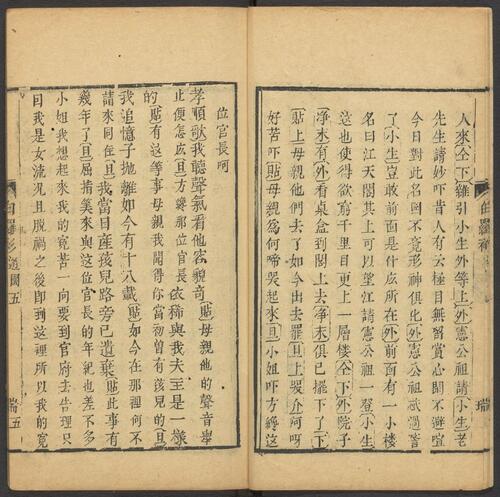 人來仝下雜引小生外等上外憲公祖請小生老
先生請妙吓昔人有云極目無留賞心閑不避喧
今日對此名園不竟形神俱化外憲公祖
了小生豈敢前面是什広所在外前面有一小楼
名曰江天閣其上可以望江請憲公祖一登小生
這也使得欲窮千里目更上一層楼仝下外院子
淨末有外看桌盆到閣上去淨末俱已擺下了下
貼上母親他們去了如今出去罷旦上嗳介呵呀
好苦吓貼母親為何啼哭起來旦小姐吓方纔這
白羅衫
瑞
位官長呵
孝順歌我聽聲氣看他容貌奇貼母親他的聲音舉
止便怎広旦方纔那位官長依稀與我夫主是一樣
的貼有這等事母親我聞得你當初曾有孩兒的旦
我追憶子抛離如今有十八載貼如今在那裡何不
請來同住旦我當日産孩兒路旁已遺棄貼此事有
幾年了旦屈指筭來與這位官長的年紀也差不多
小姐我想起來我的寃苦一向要到官府去告理只
因我是女流况且脱禍之後即到這裡所以我的寃
白羅衫 遊園 五
瑞五